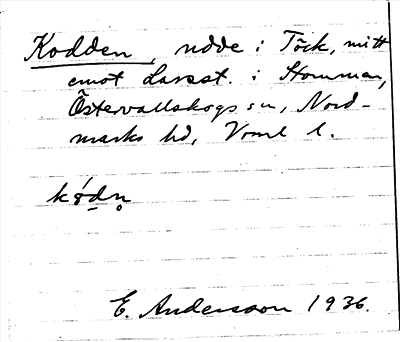 Kodden, udde i Töck, mitt
emot Lavest. i Hommen,
Östervallskogs sn, Nord-
marks hd, Vrml l.
kǿdn̥
E. Andersson 1936.